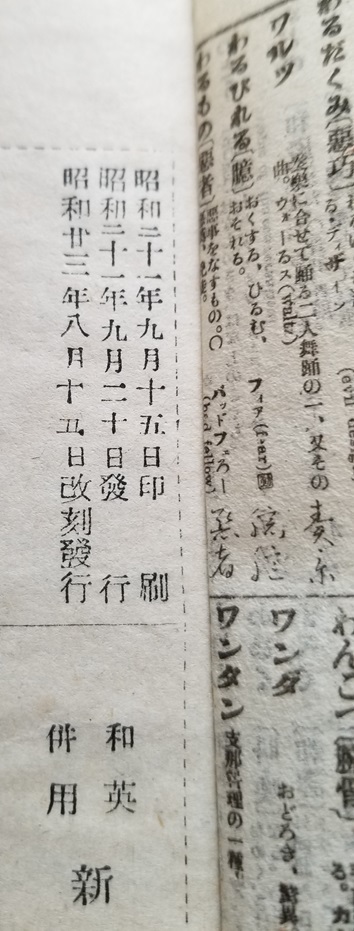 わるだくみ〔悪巧〕
る。ディザイン
ワルツ
音楽に合せて踊る二人舞踊の一、又その
曲。ウォールス(waltz)
わるびれる〔臆〕おくする、ひるむ、
おそれる。
フィア(fear)
わるもの〔悪者〕悪事をなすもの。
バッドフェロー
(bad fellow)
悪者
ワンダ
おどろき、
ワンタン
支那料理の一種。
昭和二十一年九月十五日印刷
昭和二十一年九月二十日發行
昭和廿三年八月十五日改刻發行
和英
併用
新